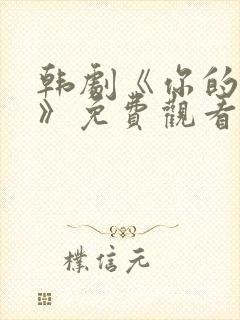 韩劇《你的
》免費觀看
樸信元